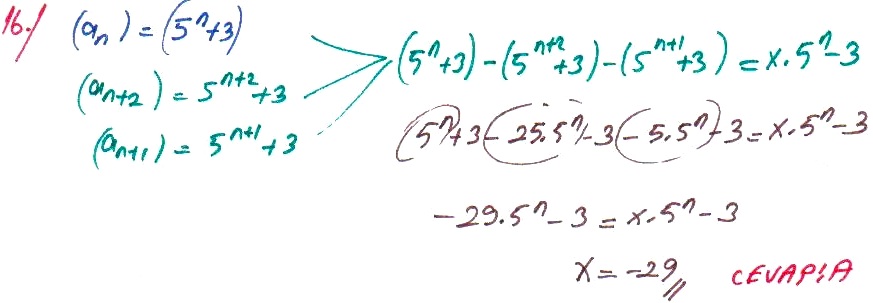 16-/ (aₙ) = (5ⁿ+3)
(aₙ₊₂) = 5ⁿ⁺²+3
(aₙ₊₁) = 5ⁿ⁺¹+3
(5ⁿ+3)-(5ⁿ⁺²+3)-(5ⁿ⁺¹+3) = x.5ⁿ-3
(5ⁿ+3-25.5ⁿ-3-5.5ⁿ-3=x.5ⁿ-3
-29.5ⁿ-3=x.5ⁿ-3
x=-29,, CEVAP:A